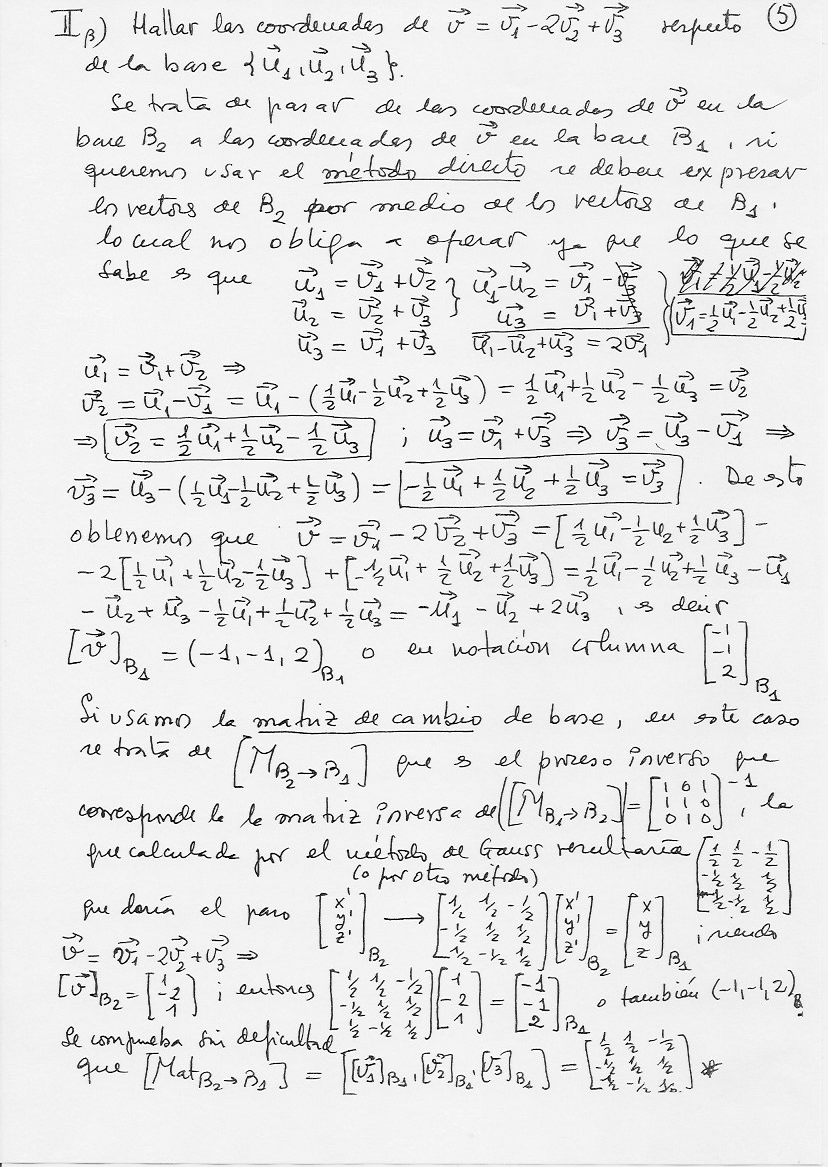 II β) Hallar las coordenadas de v⃗ = v⃗₁ - 2v⃗₂ + v⃗₃ respecto ⑤
de la base {u⃗₁, u⃗₂, u⃗₃}.
Se trata de pasar de las coordenadas de v⃗ en la
base B₂ a las coordenadas de v⃗ en la base B₁, si
queremos usar el método directo se deben expresar
los vectores de B₂ por medio de los vectores de B₁.
lo cual nos obliga a operar ya que lo que se
sabe es que u⃗₁ = v⃗₁ + v⃗₂ } u⃗₁ - u⃗₂ = v⃗₁ - v⃗₃ }
u⃗₂ = v⃗₂ + v⃗₃ } u⃗₃ = v⃗₁ + v⃗₃ } v⃗₁ = ½u⃗₁ - ½u⃗₂ + ½u⃗₃
u⃗₃ = v⃗₁ + v⃗₃ u⃗₁ - u⃗₂ + u⃗₃ = 2v⃗₁
u⃗₁ = v⃗₁ + v⃗₂ ⇒
v⃗₂ = u⃗₁ - v⃗₁ = u⃗₁ - (½u⃗₁ - ½u⃗₂ + ½u⃗₃) = ½u⃗₁ + ½u⃗₂ - ½u⃗₃ = v⃗₂
⇒ v⃗₂ = ½u⃗₁ + ½u⃗₂ - ½u⃗₃ ; u⃗₃ = v⃗₁ + v⃗₃ ⇒ v⃗₃ = u⃗₃ - v⃗₁ ⇒
v⃗₃ = u⃗₃ - (½u⃗₁ - ½u⃗₂ + ½u⃗₃) = -½u⃗₁ + ½u⃗₂ + ½u⃗₃ = v⃗₃ . De esto
obtenemos que v⃗ = v⃗₁ - 2v⃗₂ + v⃗₃ = [½u⃗₁ - ½u₂ + ½u⃗₃] -
- 2[½u⃗₁ + ½u⃗₂ - ½u⃗₃] + [-½u⃗₁ + ½u⃗₂ + ½u⃗₃) = ½u⃗₁ - ½u⃗₂ + ½u⃗₃ - u⃗₁
- u⃗₂ + u⃗₃ - ½u⃗₁ + ½u⃗₂ + ½u⃗₃ = -u⃗₁ - u⃗₂ + 2u⃗₃ , es decir
[v⃗]B₁ = (-1, -1, 2)B₁ o en notación columna [-1 -1 2]B₁
Si usamos la matriz de cambio de base, en este caso
se trata de [M B₂→B₁] que es el proceso inverso que
corresponde la la matriz inversa de ([M B₁→B₂] = [1 0 1 / 1 1 0 / 0 1 0]⁻¹, la
que calculada por el método de Gauss resultaría [½ ½ -½ / -½ ½ ½ / ½ -½ ½]
(o por otro método)
que daría el paso [x' y' z']B₂ → [1/2 1/2 -1/2 / -1/2 1/2 1/2 / 1/2 -1/2 1/2] [x' y' z']B₂ = [x y z]B₁ ; siendo
v⃗ = v⃗₁ - 2v⃗₂ + v⃗₃ ⇒
[v⃗]B₂ = [1 -2 1] ; entonces [1/2 1/2 -1/2 / -1/2 1/2 1/2 / 1/2 -1/2 1/2] [1 -2 1] = [-1 -1 2]B₁ o también (-1, -1, 2)B₁
Se comprueba sin dificultad
que [Mat B₂→B₁] = [[v⃗₁]B₁, [v⃗₂]B₁, [v⃗₃]B₁] = [½ ½ -½ / -½ ½ ½ / ½ -½ ½] *